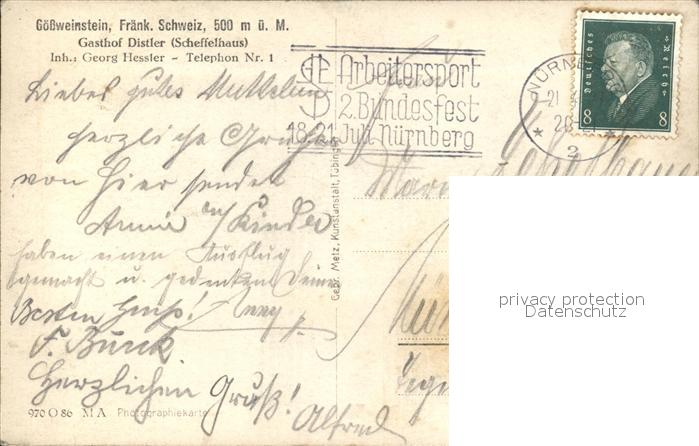 Gößweinstein, Fränk. Schweiz, 500 m ü. M.
Gasthof Distler (Scheffelhaus)
Inh.: Georg Hessler - Telephon Nr. 1
Arbeitersport
2. Bundesfest
18-21. Juli Nürnberg
NÜRNBERG
2
Deutsches Reich
8 8
Liebes gutes Muttelein
herzliche Grüße
von hier sendet
Annie u. Kinder
haben einen Ausflug
gemacht u. gedenken Deiner
Besten Gruß!
F. Burck
Herzlichen Gruß!
Alfred
Gebr. Metz, Kunstanstalt, Tübingen
970 O 86 M A Photographiekarte
privacy protection
Datenschutz